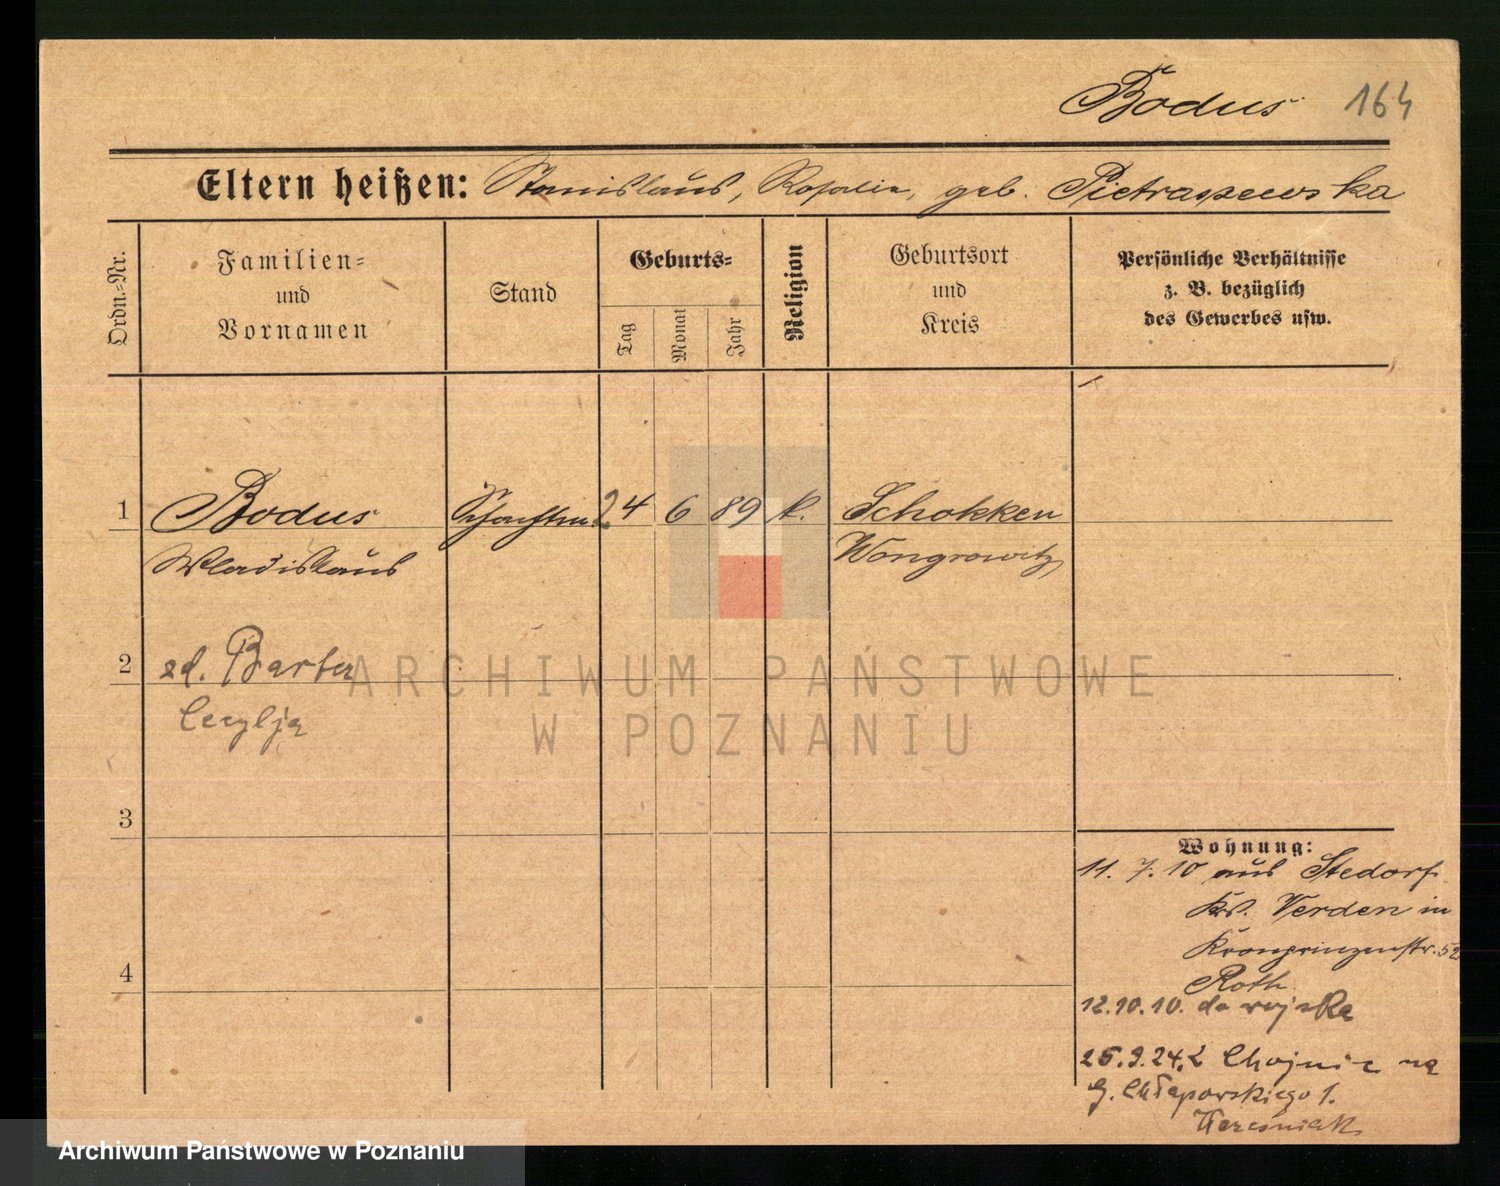 Bodus 164
Eltern heißen: Stanislaus, Rosalie, geb. Pietraszewska
Ordn.-Nr.
Familien-
und
Vornamen
Stand
Geburts-
Tag
Monat
Jahr
Religion
Geburtsort
und
Kreis
Persönliche Verhältnisse
z. B. bezüglich
des Gewerbes usw.
1 Bodus 24 6 89 k. Schokken
Wladislaus Wongrowitz
2 zd. Barter
Cecylja
3
4
Wohnung:
11. 7. 10 aus Stedorf
Krs. Verden in
Kronprinzenstr. 52
Roth.
12.10.10. do wojska
25.9.24. z Chojnic na
G. Chłapowskiego 1.
ARCHIWUM PAŃSTWOWE
W POZNANIU
Archiwum Państwowe w Poznaniu